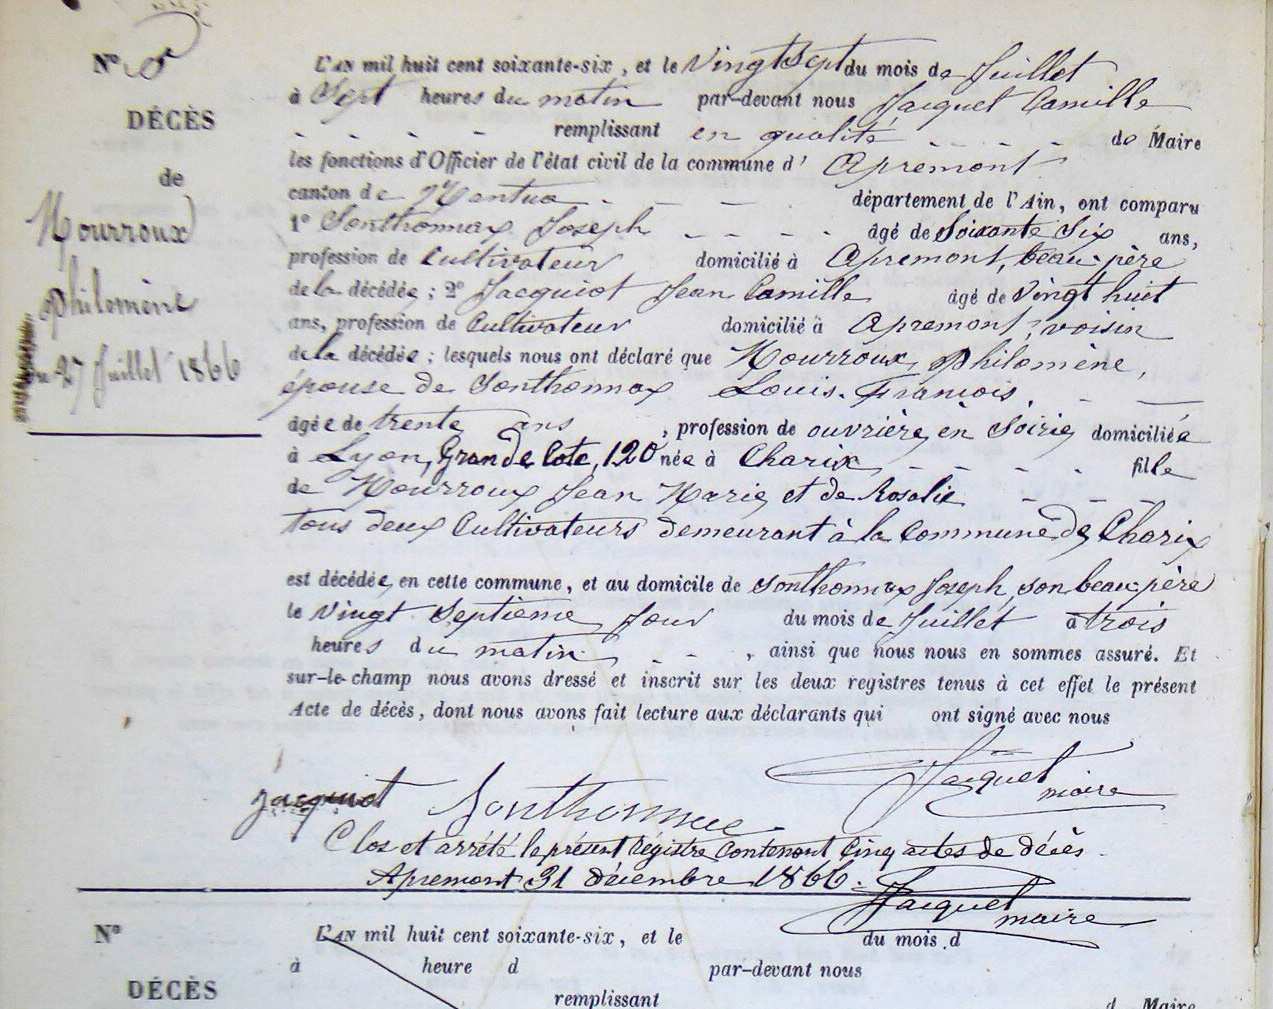 N° 5
DÉCÈS
de
Mourroux
Philomène
Du 27 Juillet 1866
L'AN mil huit cent soixante-six, et le Vingt Sept du mois de Juillet
à Sept heures du matin par-devant nous Jacquet Camille
remplissant en qualité de Maire
les fonctions d'Officier de l'état civil de la commune d' Apremont
canton de Nantua département de l'Ain, ont comparu
1° Sonthonnax Joseph âgé de Soixante Six ans,
profession de Cultivateur domicilié à Apremont, beau-père
de la décédée ; 2° Jacquiot Jean Camille âgé de Vingt huit
ans, profession de Cultivateur domicilié à Apremont, voisin
de la décédée ; lesquels nous ont déclaré que Mourroux Philomène,
épouse de Sonthonnax Louis-François,
âgée de trente ans, profession de ouvrière en Soirie, domiciliée
à Lyon, Grande Cote, 120 née à Charix fille
de Mourroux Jean Marie et de Rosalie
tous deux Cultivateurs demeurant à la Commune de Charix
est décédée, en cette commune, et au domicile de Sonthonnax Joseph, son beau-père
le Vingt Septième Jour du mois de Juillet à trois
heures du matin, ainsi que nous nous en sommes assuré. Et
sur-le-champ nous avons dressé et inscrit sur les deux registres tenus à cet effet le présent
Acte de décès, dont nous avons fait lecture aux déclarants qui ont signé avec nous
Jacquet
maire
jacquiot Sonthonnax
Clos et arrêté le présent Régistre Contenant Cinq actes de décès.
Apremont 31 décembre 1866.
Jacquet
maire
N°
DÉCÈS
L'AN mil huit cent soixante-six, et le du mois d
à heure d par-devant nous
remplissant d Maire